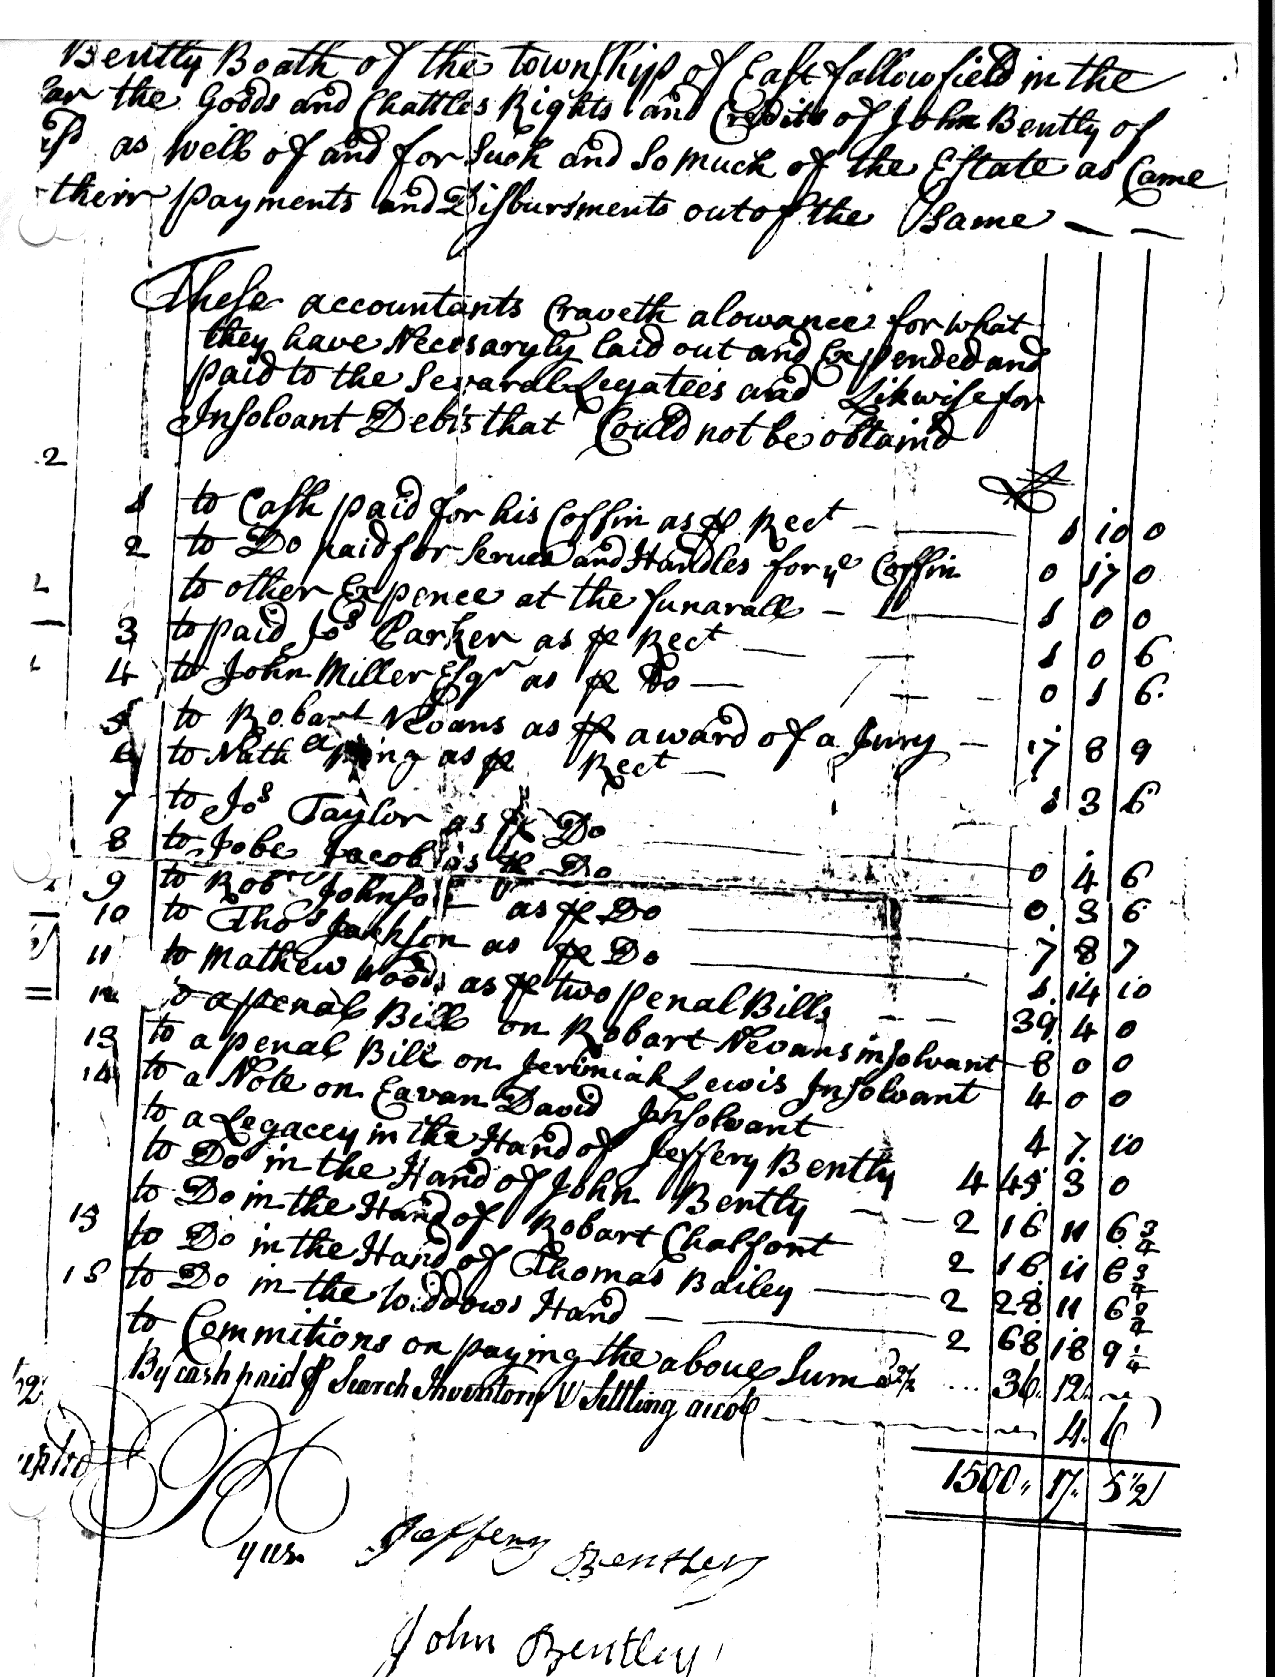 Bently Boath of the township of East fallowfield in the
the Goods and Chattles Rights and Credits of John Bently of
as well of and for Such and So much of the Estate as Came
their payments and Disbursments out of the Same
These accountants Craveth alowance for what
they have Necessaryly laid out and Expended and
paid to the Several Legatees and Likwise for
Insolvant Debts that Could not be obtaind
2
1 to Cash paid for his Coffin as ⅌ Rect 1 10 0
2 to Do paid for Scrues and Handles for ye Coffin 0 17 0
to other Expence at the funarall 1 0 0
3 to paid Jos Parker as ⅌ Rect 1 0 6
4 to John Miller Esqr as ⅌ Do 0 1 6
5 to Robart Nevans as ⅌ award of a Jury 17 8 9
6 to Nath Ring as ⅌ Rect 1 3 6
7 to Jos Taylor as ⅌ Do 0 4 6
8 to Jobe Jacobs as ⅌ Do 0 3 6
9 to Robt Johnson as ⅌ Do 7 8 7
10 to Thos Jackson as ⅌ Do 1 14 10
11 to Mathew Woods as ⅌ two penal Bills 39 4 0
12 to a penal Bill on Robart Nevans insolvant 8 0 0
13 to a penal Bill on Jerimiah Lewis Insolvant 4 0 0
14 to a Note on Eavan David Insolvant 4 7 10
to a Legacey in the Hand of Jeffery Bently 4 45 3 0
to Do in the Hand of John Bently 2 16 11 6 3/4
to Do in the Hand of Robart Chalfont 2 16 11 6 3/4
15 to Do in the Hand of Thomas Bailey 2 28 11 6 3/4
15 to Do in the Widdows Hand 2 68 18 9 1/4
to Commitions on paying the above Sum 36 12
By cash paid ⅌ Search Inventory & Settling acct 4 6
1500 17 5 1/2
Jeffery Bentley
John Bentley